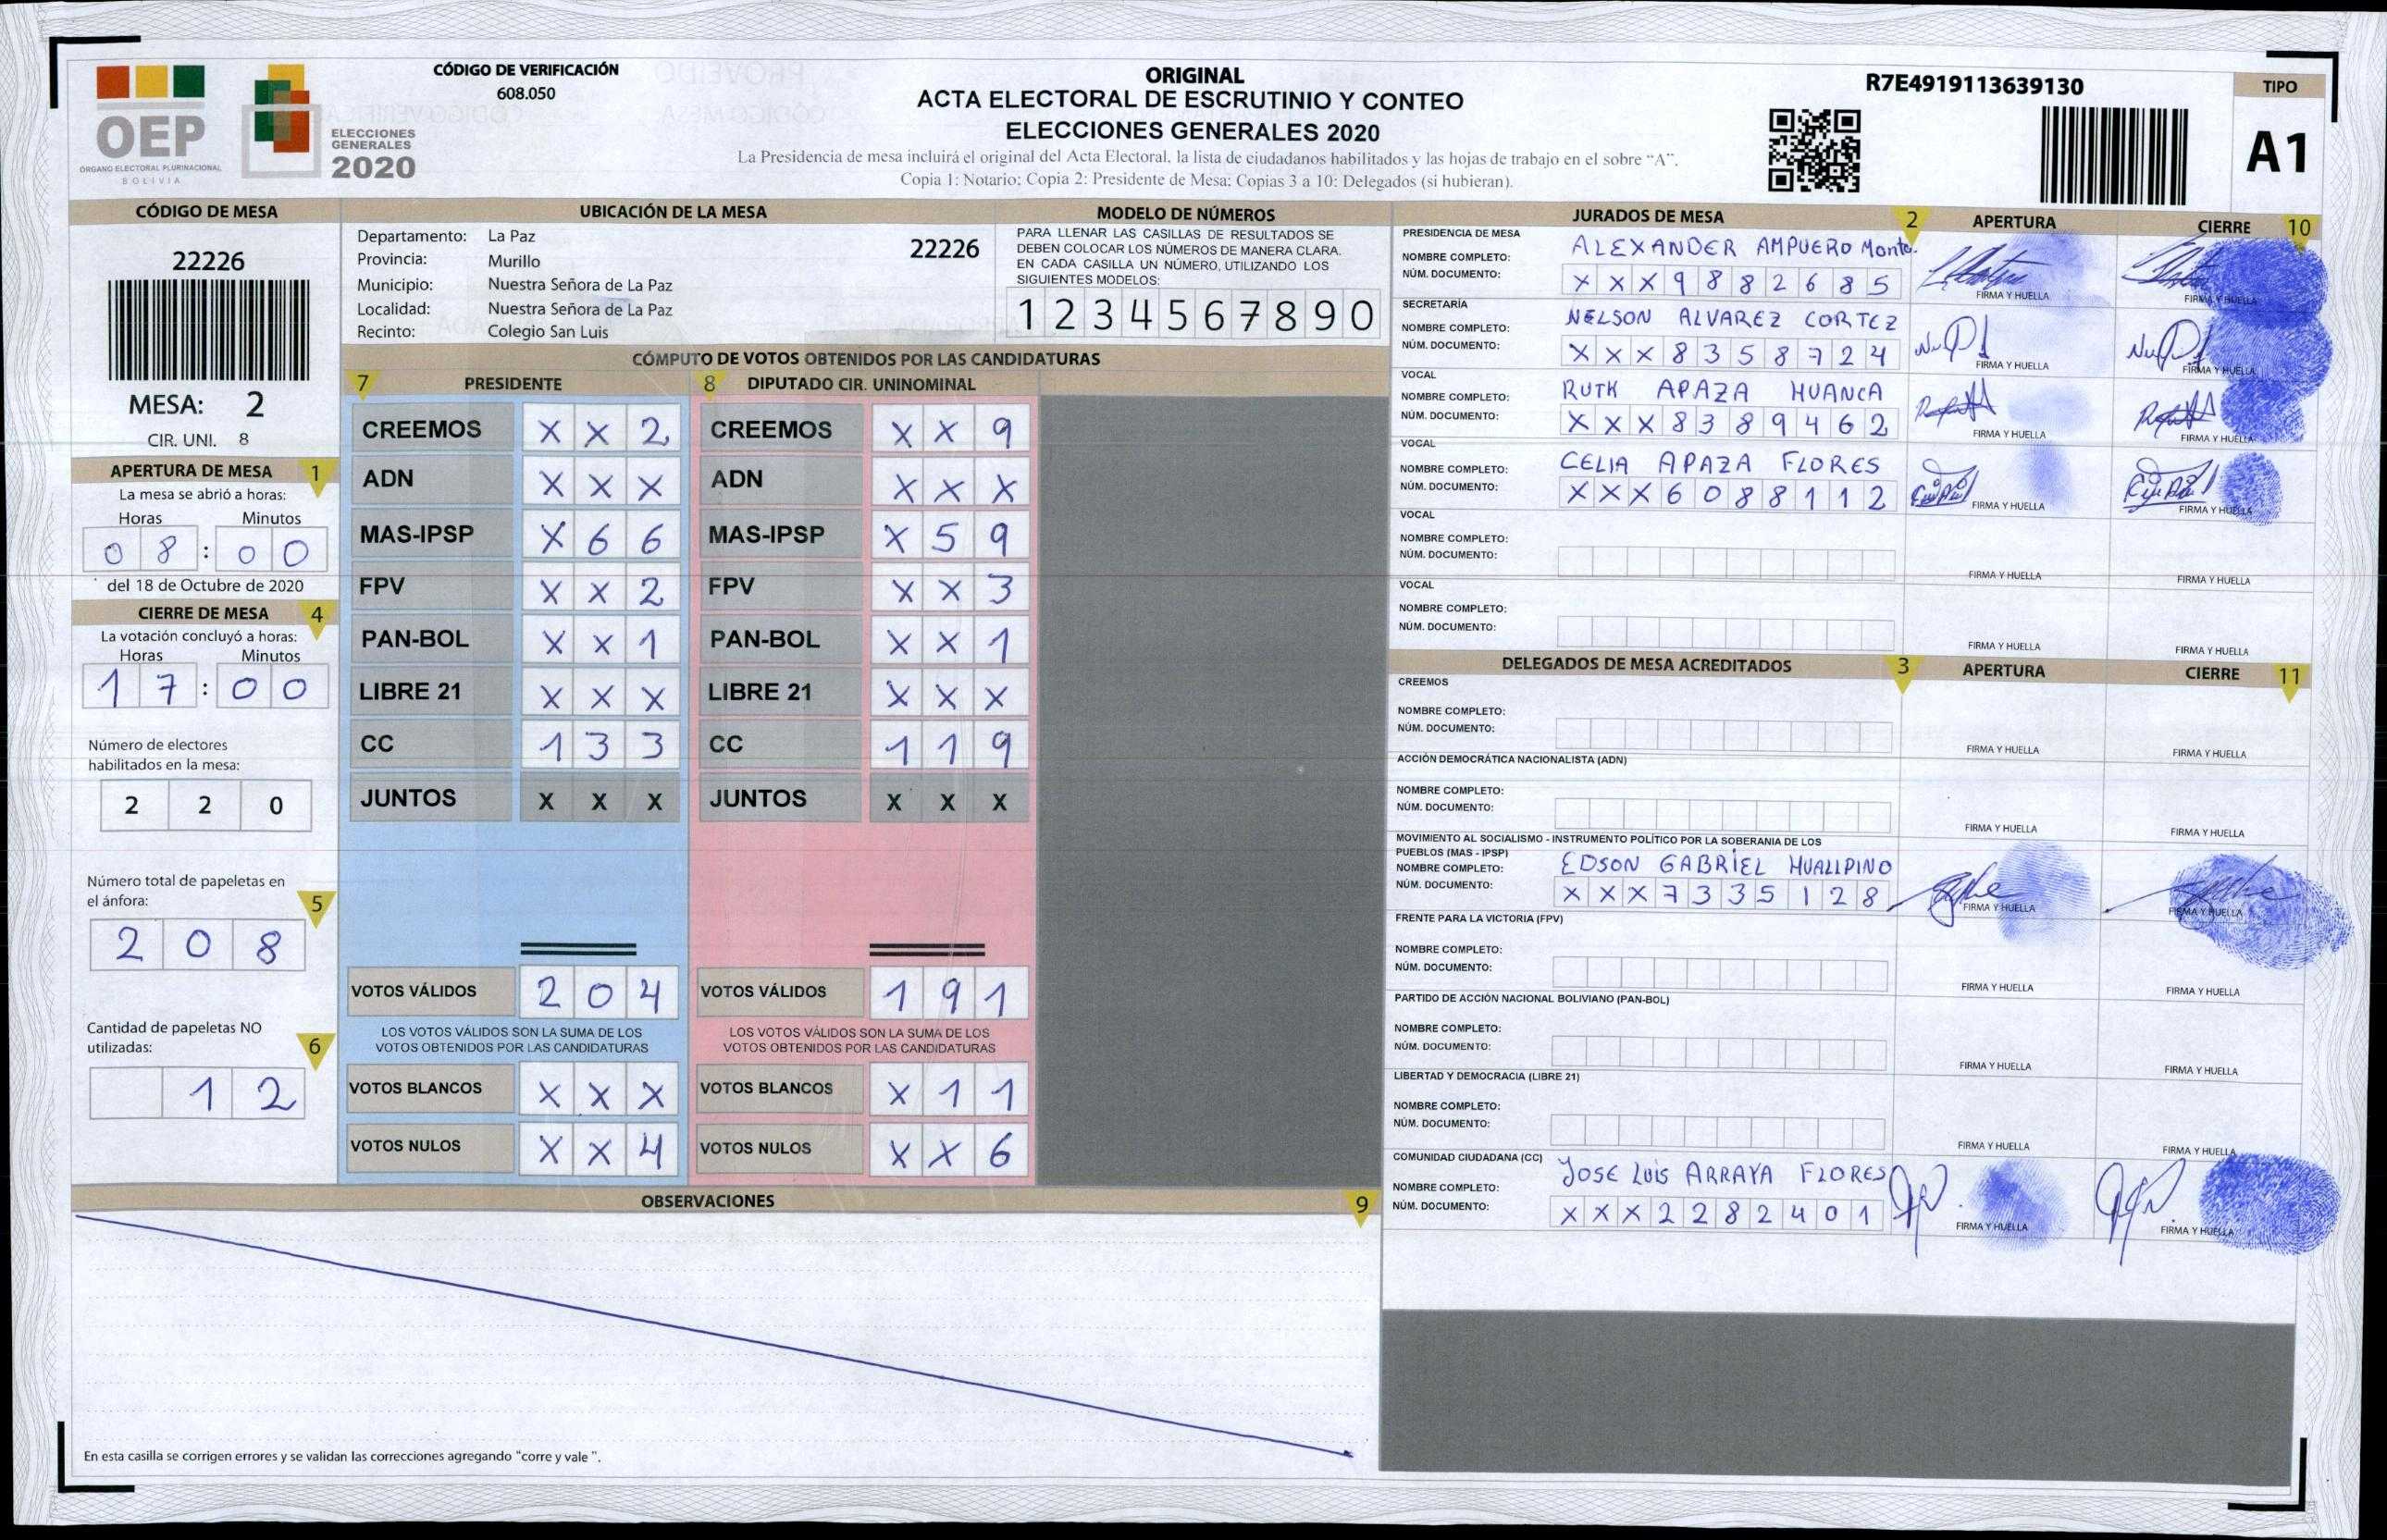 OEP
ÓRGANO ELECTORAL PLURINACIONAL
BOLIVIA
ELECCIONES
GENERALES
2020
CÓDIGO DE VERIFICACIÓN
608.050
ORIGINAL
ACTA ELECTORAL DE ESCRUTINIO Y CONTEO
ELECCIONES GENERALES 2020
La Presidencia de mesa incluirá el original del Acta Electoral, la lista de ciudadanos habilitados y las hojas de trabajo en el sobre “A”.
Copia 1: Notario; Copia 2: Presidente de Mesa; Copias 3 a 10: Delegados (si hubieran).
R7E4919113639130
TIPO
A1
CÓDIGO DE MESA
22226
MESA: 2
CIR. UNI. 8
APERTURA DE MESA 1
La mesa se abrió a horas:
Horas Minutos
0 8 : 0 0
del 18 de Octubre de 2020
CIERRE DE MESA 4
La votación concluyó a horas:
Horas Minutos
1 7 : 0 0
Número de electores
habilitados en la mesa:
2 2 0
Número total de papeletas en
el ánfora: 5
2 0 8
Cantidad de papeletas NO
utilizadas: 6
1 2
UBICACIÓN DE LA MESA
Departamento: La Paz 22226
Provincia: Murillo
Municipio: Nuestra Señora de La Paz
Localidad: Nuestra Señora de La Paz
Recinto: Colegio San Luis
MODELO DE NÚMEROS
PARA LLENAR LAS CASILLAS DE RESULTADOS SE
DEBEN COLOCAR LOS NÚMEROS DE MANERA CLARA.
EN CADA CASILLA UN NÚMERO, UTILIZANDO LOS
SIGUIENTES MODELOS:
1 2 3 4 5 6 7 8 9 0
CÓMPUTO DE VOTOS OBTENIDOS POR LAS CANDIDATURAS
7 PRESIDENTE 8 DIPUTADO CIR. UNINOMINAL
CREEMOS X X 2 CREEMOS X X 9
ADN X X X ADN X X X
MAS-IPSP X 6 6 MAS-IPSP X 5 9
FPV X X 2 FPV X X 3
PAN-BOL X X 1 PAN-BOL X X 1
LIBRE 21 X X X LIBRE 21 X X X
CC 1 3 3 CC 1 1 9
JUNTOS X X X JUNTOS X X X
VOTOS VÁLIDOS 2 0 4 VOTOS VÁLIDOS 1 9 1
LOS VOTOS VÁLIDOS SON LA SUMA DE LOS LOS VOTOS VÁLIDOS SON LA SUMA DE LOS
VOTOS OBTENIDOS POR LAS CANDIDATURAS VOTOS OBTENIDOS POR LAS CANDIDATURAS
VOTOS BLANCOS X X X VOTOS BLANCOS X 1 1
VOTOS NULOS X X 4 VOTOS NULOS X X 6
OBSERVACIONES 9
En esta casilla se corrigen errores y se validan las correcciones agregando “corre y vale ”.
JURADOS DE MESA 2 APERTURA CIERRE 10
PRESIDENCIA DE MESA
NOMBRE COMPLETO: ALEXANDER AMPUERO Monte.
NÚM. DOCUMENTO: X X X 9 8 8 2 6 8 5
FIRMA Y HUELLA FIRMA Y HUELLA
SECRETARÍA
NOMBRE COMPLETO: NELSON ALVAREZ CORTEZ
NÚM. DOCUMENTO: X X X 8 3 5 8 7 2 4
FIRMA Y HUELLA FIRMA Y HUELLA
VOCAL
NOMBRE COMPLETO: RUTH APAZA HUANCA
NÚM. DOCUMENTO: X X X 8 3 8 9 4 6 2
FIRMA Y HUELLA FIRMA Y HUELLA
VOCAL
NOMBRE COMPLETO: CELIA APAZA FLORES
NÚM. DOCUMENTO: X X X 6 0 8 8 1 1 2
FIRMA Y HUELLA FIRMA Y HUELLA
VOCAL
NOMBRE COMPLETO:
NÚM. DOCUMENTO:
FIRMA Y HUELLA FIRMA Y HUELLA
VOCAL
NOMBRE COMPLETO:
NÚM. DOCUMENTO:
FIRMA Y HUELLA FIRMA Y HUELLA
DELEGADOS DE MESA ACREDITADOS 3 APERTURA CIERRE 11
CREEMOS
NOMBRE COMPLETO:
NÚM. DOCUMENTO:
FIRMA Y HUELLA FIRMA Y HUELLA
ACCIÓN DEMOCRÁTICA NACIONALISTA (ADN)
NOMBRE COMPLETO:
NÚM. DOCUMENTO:
FIRMA Y HUELLA FIRMA Y HUELLA
MOVIMIENTO AL SOCIALISMO - INSTRUMENTO POLÍTICO POR LA SOBERANIA DE LOS
PUEBLOS (MAS - IPSP)
NOMBRE COMPLETO: EDSON GABRIEL HUALLPINO
NÚM. DOCUMENTO: X X X 7 3 3 5 1 2 8
FIRMA Y HUELLA FIRMA Y HUELLA
FRENTE PARA LA VICTORIA (FPV)
NOMBRE COMPLETO:
NÚM. DOCUMENTO:
FIRMA Y HUELLA FIRMA Y HUELLA
PARTIDO DE ACCIÓN NACIONAL BOLIVIANO (PAN-BOL)
NOMBRE COMPLETO:
NÚM. DOCUMENTO:
FIRMA Y HUELLA FIRMA Y HUELLA
LIBERTAD Y DEMOCRACIA (LIBRE 21)
NOMBRE COMPLETO:
NÚM. DOCUMENTO:
FIRMA Y HUELLA FIRMA Y HUELLA
COMUNIDAD CIUDADANA (CC)
NOMBRE COMPLETO: JOSE LUIS ARRAYA FLORES
NÚM. DOCUMENTO: X X X 2 2 8 2 4 0 1
FIRMA Y HUELLA FIRMA Y HUELLA